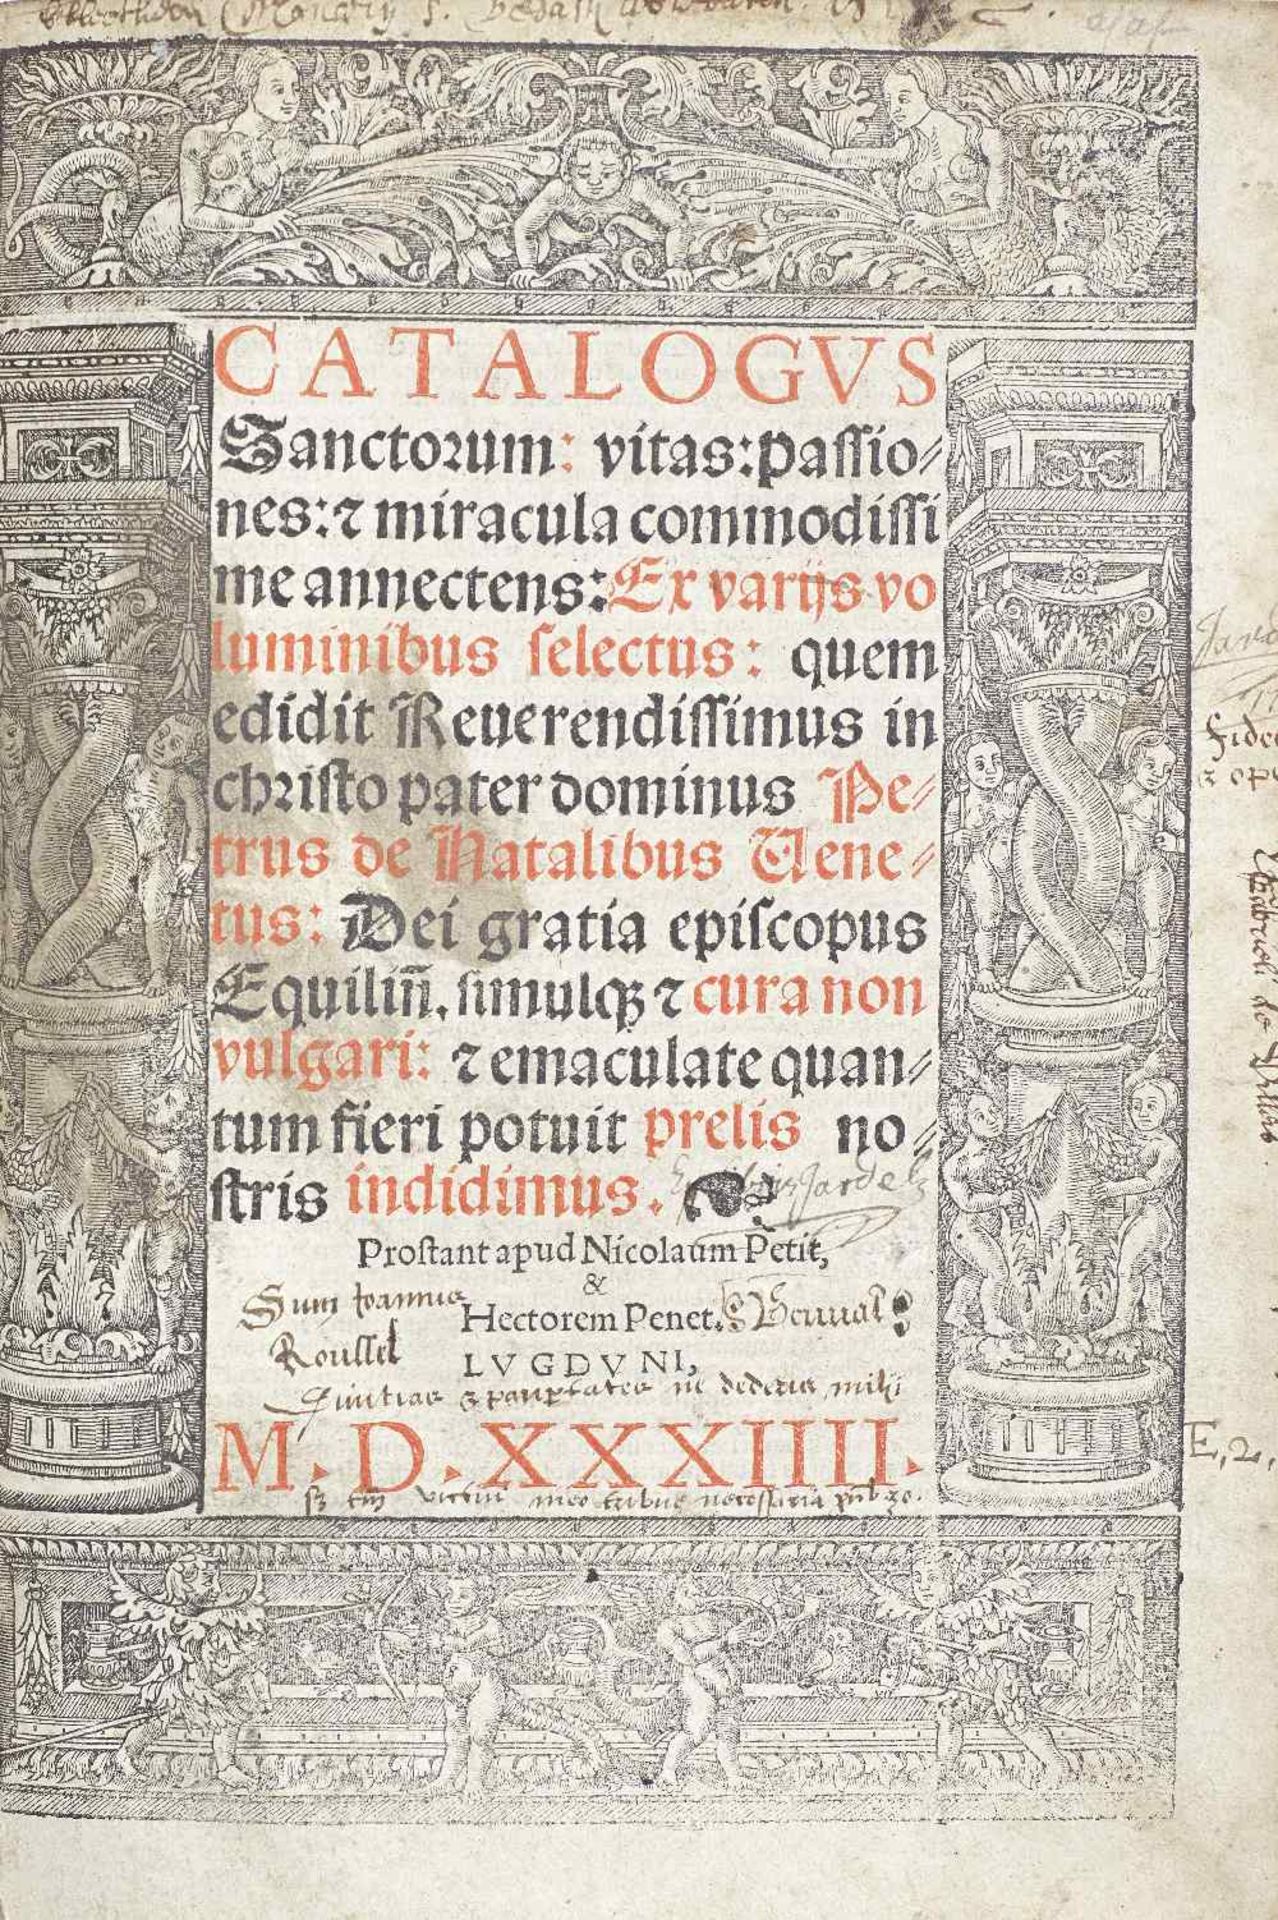 CATALOGVS
Sanctorum: vitas: passio⸗
nes: ⁊ miracula commodissi
me annectens: Ex varijs vo
luminibus selectus: quem
edidit Reuerendissimus in
christo pater dominus Pe⸗
trus de Natalibus Uene⸗
tus: Dei gratia episcopus
Equilin̄. simulqꝫ ⁊ cura non
vulgari: ⁊ emaculate quan⸗
tum fieri potuit prelis no⸗
stris indidimus. ❧
Jardel
Prostant apud Nicolaum Petit,
&
Sum Joannis
Hectorem Penet.
Roussel
LVGDVNI,
M. D. XXXIIII.
E, 2,